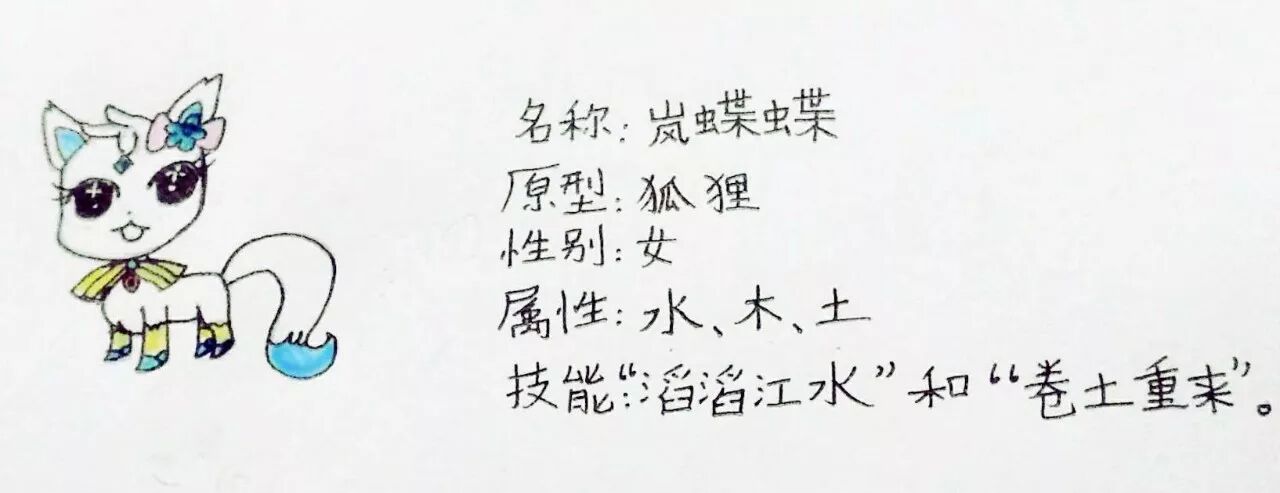 名称：岚蝶蝶
原型：狐狸
性别：女
属性：水、木、土
技能：“滔滔江水”和“卷土重来”。